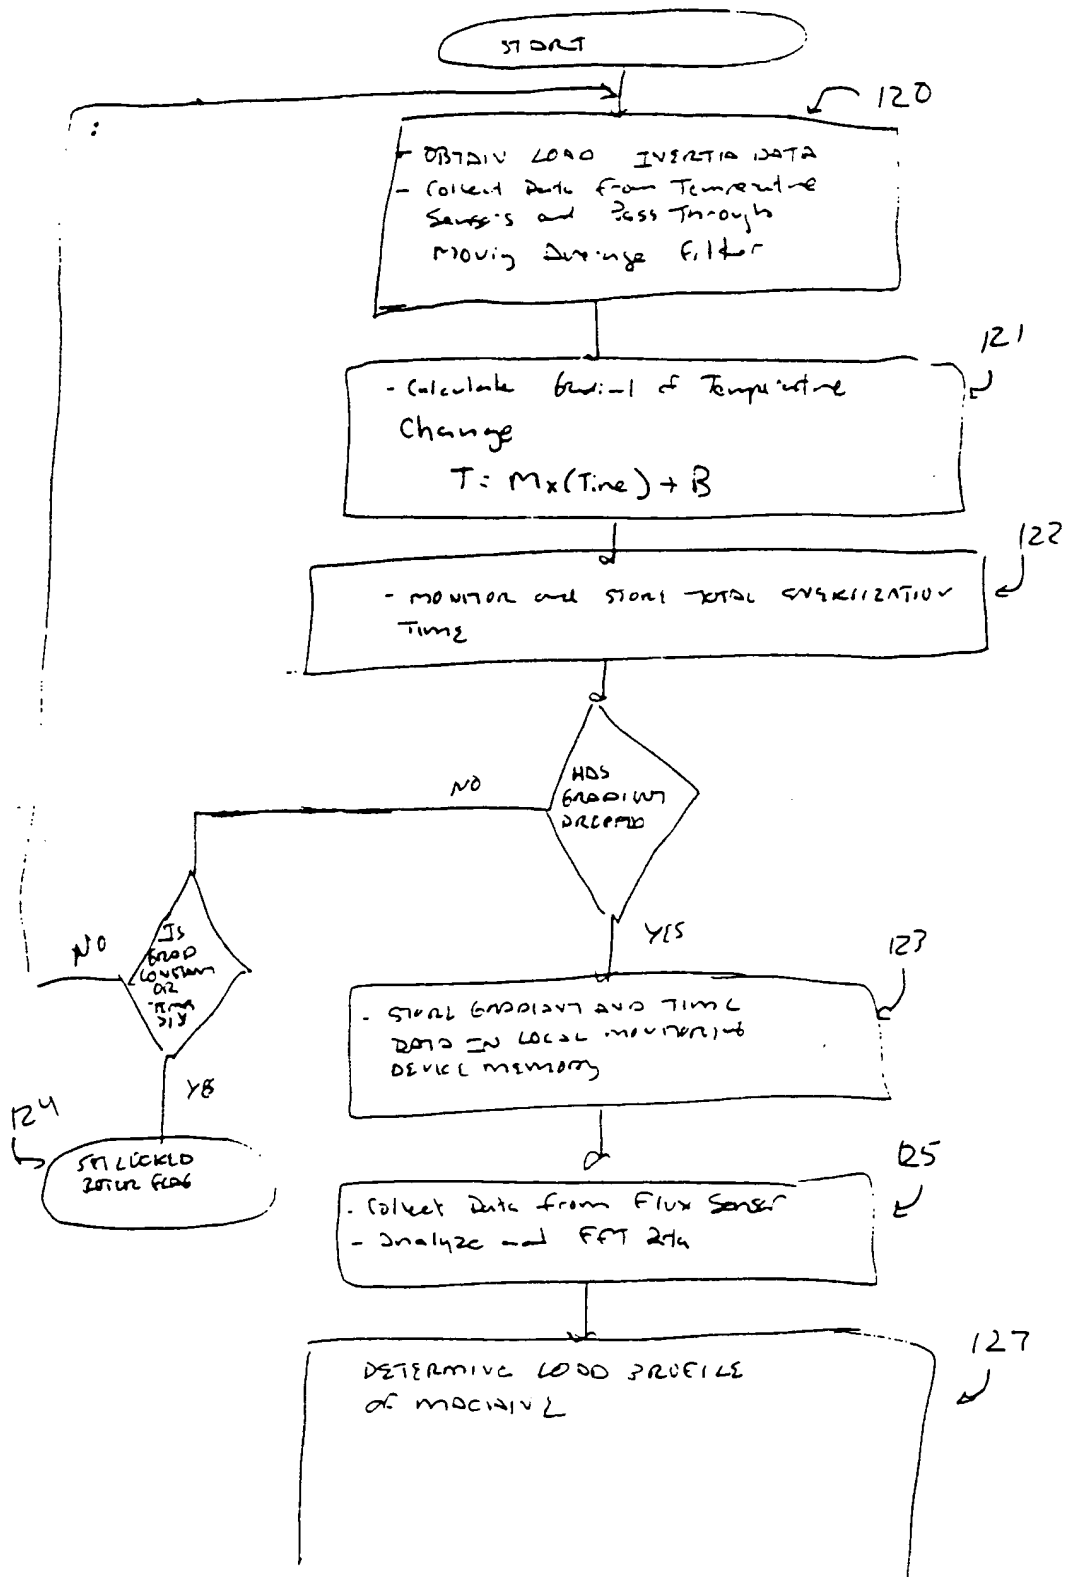 START
120
- OBTAIN LOAD INERTIA DATA
- Collect Data from Temperature
Sensors and Pass Through
Moving Average Filter
121
- Calculate Gradient of Temperature
Change
T = Mx(Time) + B
122
- MONITOR and STORE TOTAL ENERGIZATION
TIME
HAS
GRADIENT
DROPPED
NO
YES
IS
GRAD
CONSTANT
OR
NO
YES
123
- STORE GRADIENT AND TIME
DATA IN LOCAL MONITORING
DEVICE MEMORY
124
SET LOCKED
ROTOR FLAG
125
- Collect Data from Flux Sensor
- Analyze and FFT Data
127
DETERMINE LOAD PROFILE
OF MACHINE